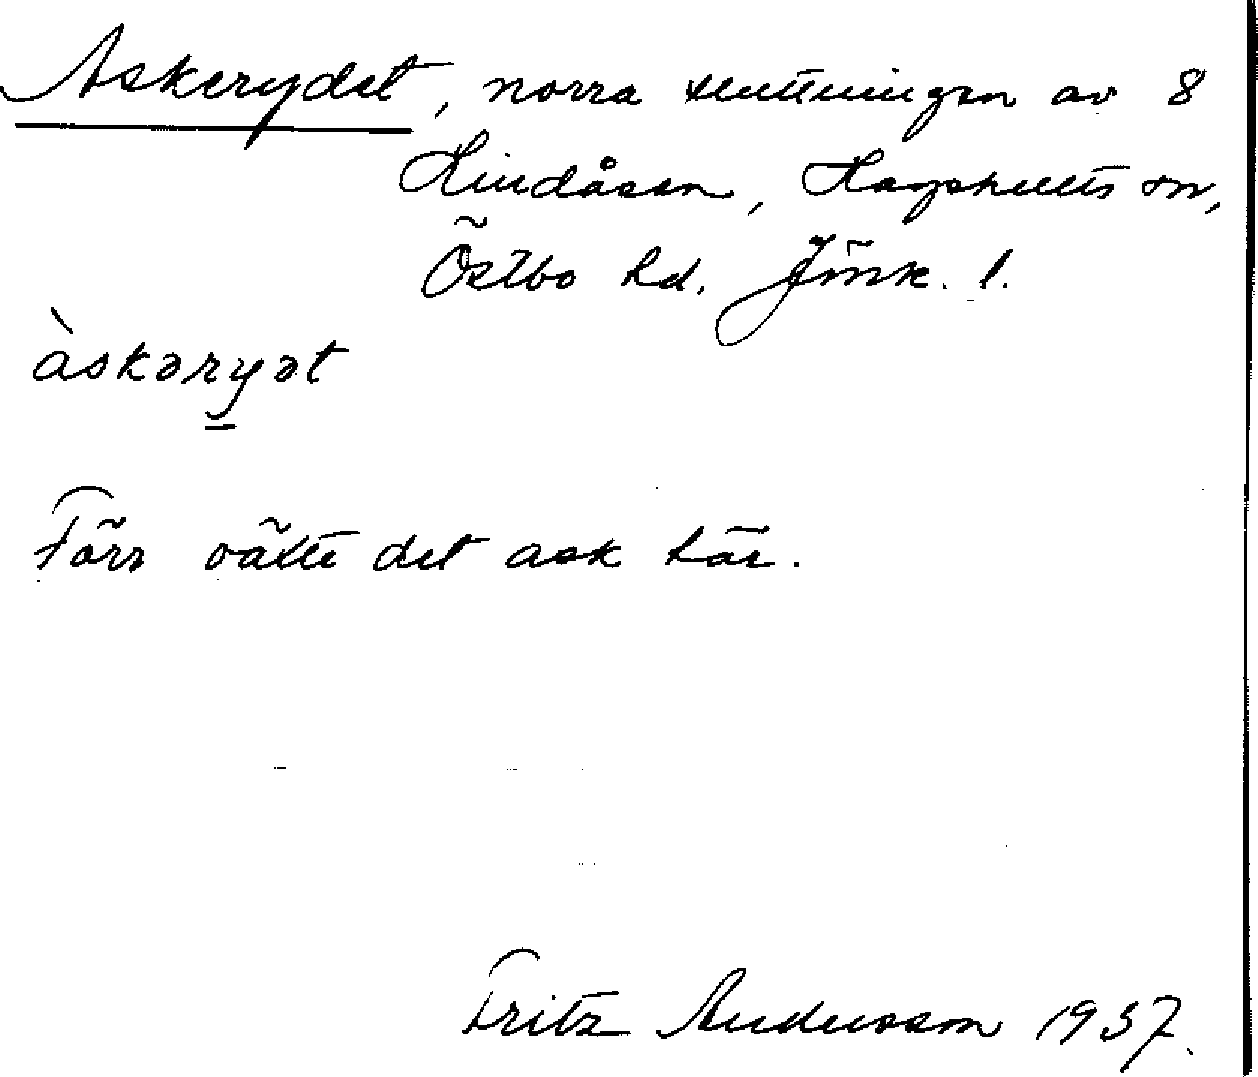 Askerydet, norra sluttningen av 8
Hindåsen, Hagshults sn,
Östbo hd. Jönk. l.
àskəryət
Förr växte det ask här.
Fritz Andersson 1937.